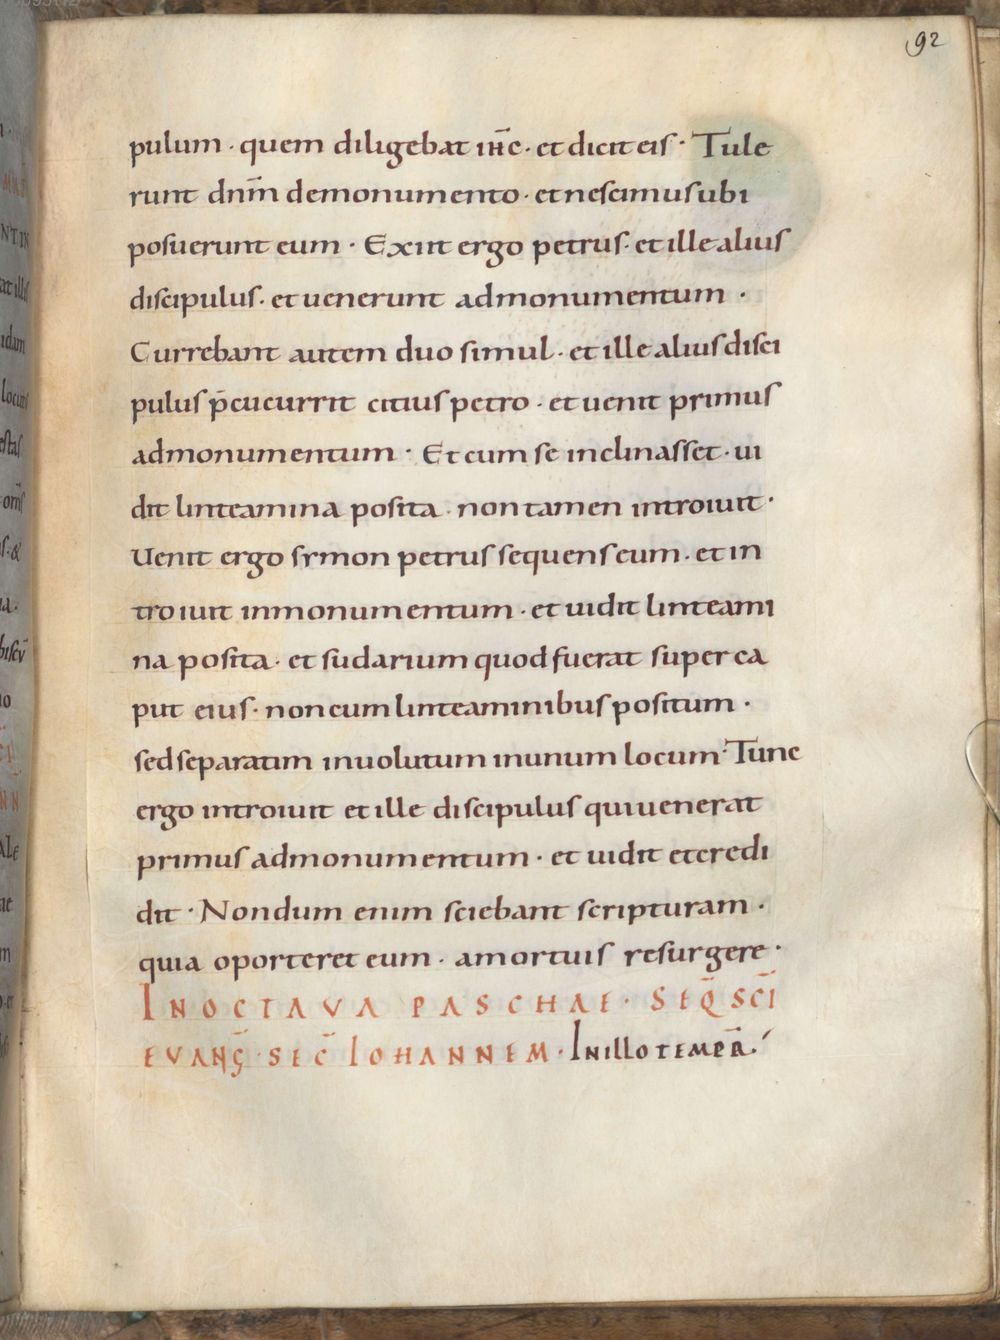 92
pulum · quem diligebat ih̅c · et dicit eis · Tule
runt dnm̅ demonumento · et nescimus ubi
posuerunt eum · Exiit ergo petrus · et ille alius
discipulus · et uenerunt admonumentum ·
Currebant autem duo simul · et ille alius disci
pulus p̅cucurrit citius petro · et uenit primus
admonumentum · Et cum se inclinasset · ui
dit linteamina posita · non tamen introiuit ·
Uenit ergo symon petrus sequens eum · et in
troiuit inmonumentum · et uidit linteami
na posita · et sudarium quod fuerat super ca
put eius · non cum linteaminibus positum ·
sed separatim inuolutum inunum locum · Tunc
ergo introiuit et ille discipulus qui uenerat
primus admonumentum · et uidit et credi
dit · Nondum enim sciebant scripturam ·
quia oporteret eum · amortuis resurgere ·
IN OCTAVA PASCHAE · SEQ̅ SC̅I
EVANG̅ · SEC̅ IOHANNEM · In illo tempr̅ ·